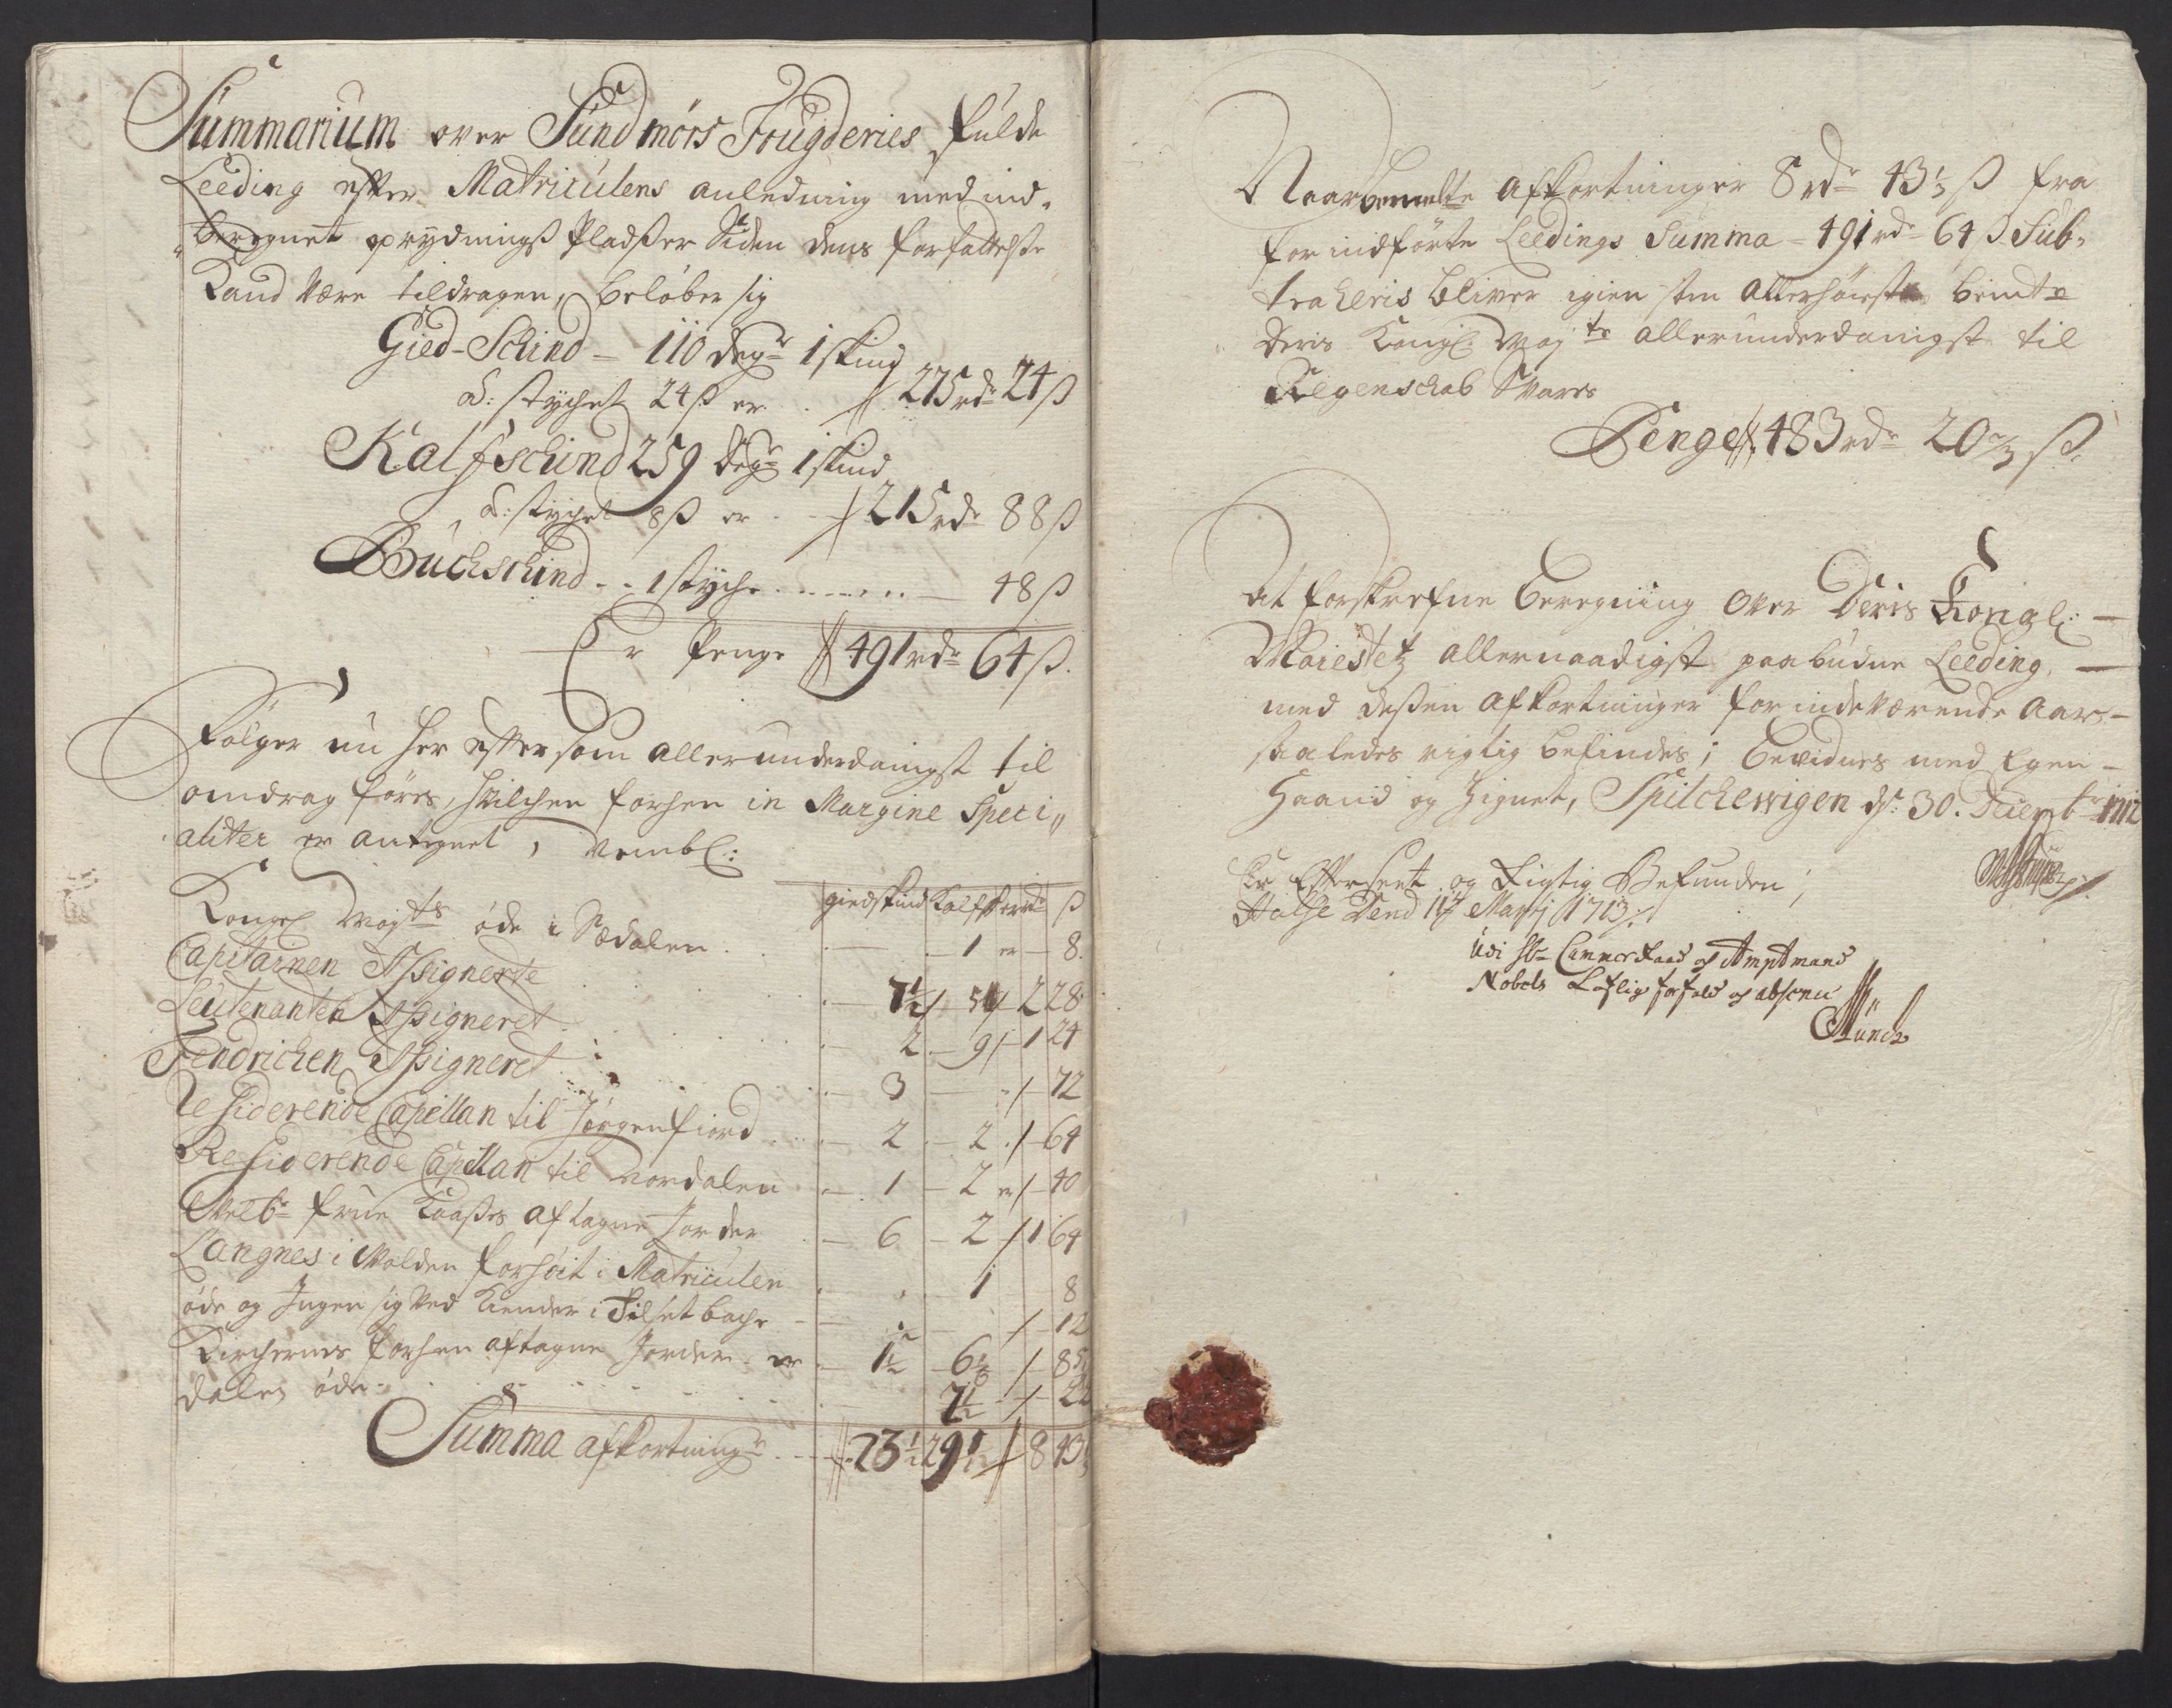 Summarium over Sundmørs Fougderies fulde
Leeding efter Matriculens anledning med ind-
beregnet oprydnings Pladser Siden dens forfattelse
Kand være tildragen, beløber sig
Gied-Schind - 110 degr 1 skind
à: støchet 24 ß er . // 275 rdr 24 ß
Kalfschind 259 degr 1 skind
à: støchet 8 ß er . . / 215 rdr 88 ß
Buchschind - - 1 støche - - - - - 48 ß
Er Penge // 491 rdr 64 ß.
Følger nu her efter som allerunderdanigst til
omdrag føres, hvilchen forhen in Margine Speci„
aliter er antegnet, nembl:
giedskind Kalfsk rdr ß
Kongel Maijts øde i Sædalen . . — 1 er — 8.
Capitainen Assigneret . . 7½ / 5 / 2 28
Leutenanten Assigneret . . 2 - 9 / 1 24
Fendrichen Assigneret . . 3 — - / - 72
Residerende Capellan til Jørgenfiord . . 2 - 2 . / 64
Residerende Capellan til Nordalen . 1 - 2 er / - 40
Welbr frue Kaases aftagne Jorder - 6 - 2 / 1 64
Langnes i Volden forhøit i Matriculen . 1 8
øde og Ingen sig ved Kiender i Silsetbache - / - 12
Kirchernes forhen aftagne Jorder er - 1½ - 6½ / 8
dalen øde - . . 7½ - / - 2
Summa afkortningr . . - // 23½ 29½ / 8 43
Naar bemelte afkortninger 8 rdr 43⅓ ß fra
for indførte Leedings Summa - 491 rdr - 64 ß Sub-
traheris bliver igien som allerhøiest bemte
Deris Kongl: Maijts allerunderdanigst til
Regenschab Svares
Penge // 483 rdr 20⅔ ß.
At forskrefne beregning over Deris Kongl: —
Maiestetz allernaadigst paabudne Leeding, —
med dessen afkortninger for indeværende Aar, -
saaledes rigtig befindes; bevidnes med Egen -
Haand og Zignet, Spilchewigen dr: 30. Decembr 1712
Er Efterseet og Rigtig Befunden;
Halse Dend 11te Martij 1713
Udi Hr Cammer Raad og Amptmand
Nobels Loflig forfald og absence
Münch